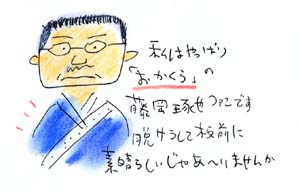 私はやっぱり
「おかくら」の
藤岡琢也ファンです
脱サラして板前に
素晴らしいじゃあ〜りませんか